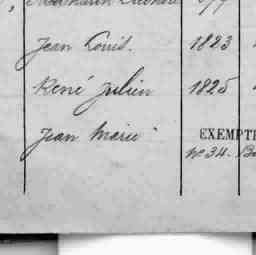 Jean Louis. 1823
René Julien 1825
Jean Marie EXEMPT
N° 34.